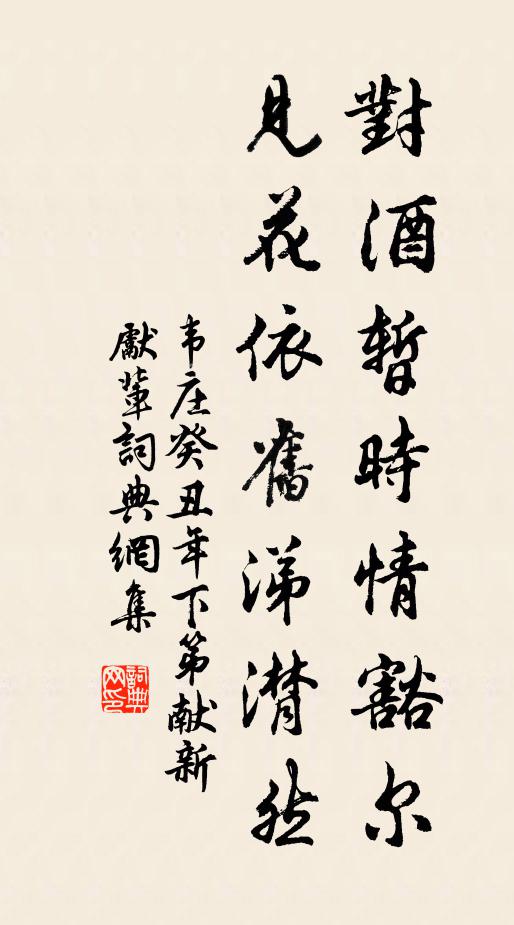 對酒暫時情豁尔
見花依舊涕潸然
韦庄癸丑年下第献新
獻輩詞典網集
詞典
网印